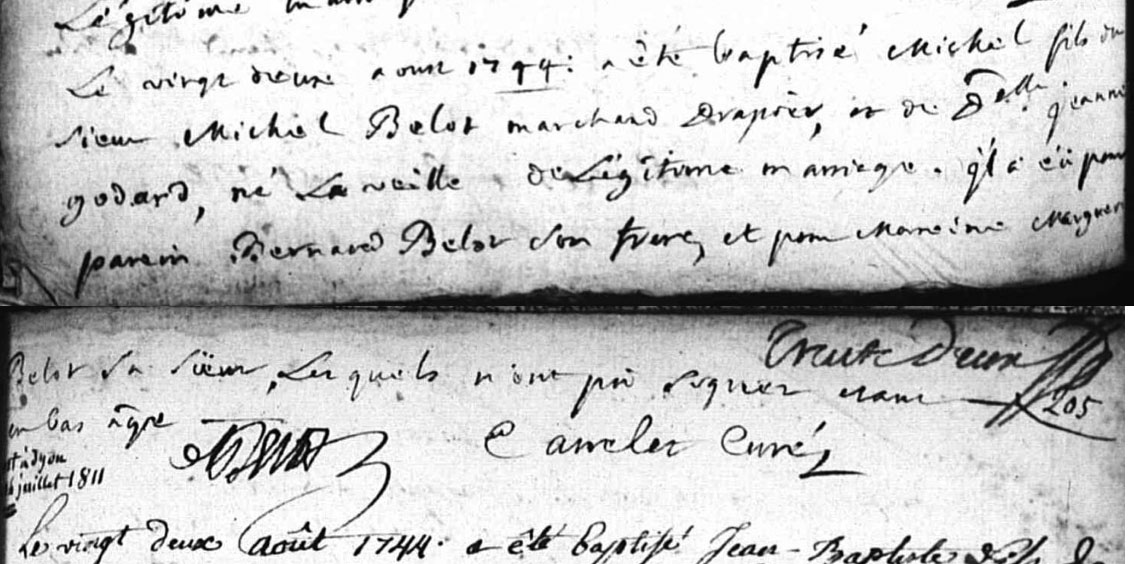 Légitime
Le vingt deux aoust 1744. a été baptisé Michel fils du
sieur Michel Belot marchand Drapier, et de Delle jeanne
godard, né La veille de Légitime mariage. qi'l a eü pour
parein Bernard Belot son frere, et pour Mareine Marguer
trente deux
Belot sa sœur, Les quels n'ont pû signer etant
en bas âge
205
Belot
Carrelet Curé
à dyon
juillet 1811
Le vingt deux Août 1744. a été baptisé Jean-Baptiste fils de